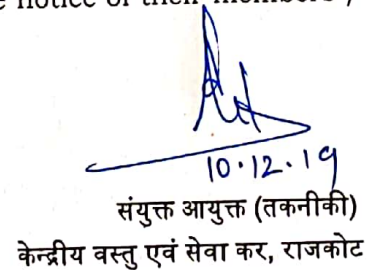 notice of their members
10.12.19
संयुक्त आयुक्त (तकनीकी)
केन्द्रीय वस्तु एवं सेवा कर, राजकोट